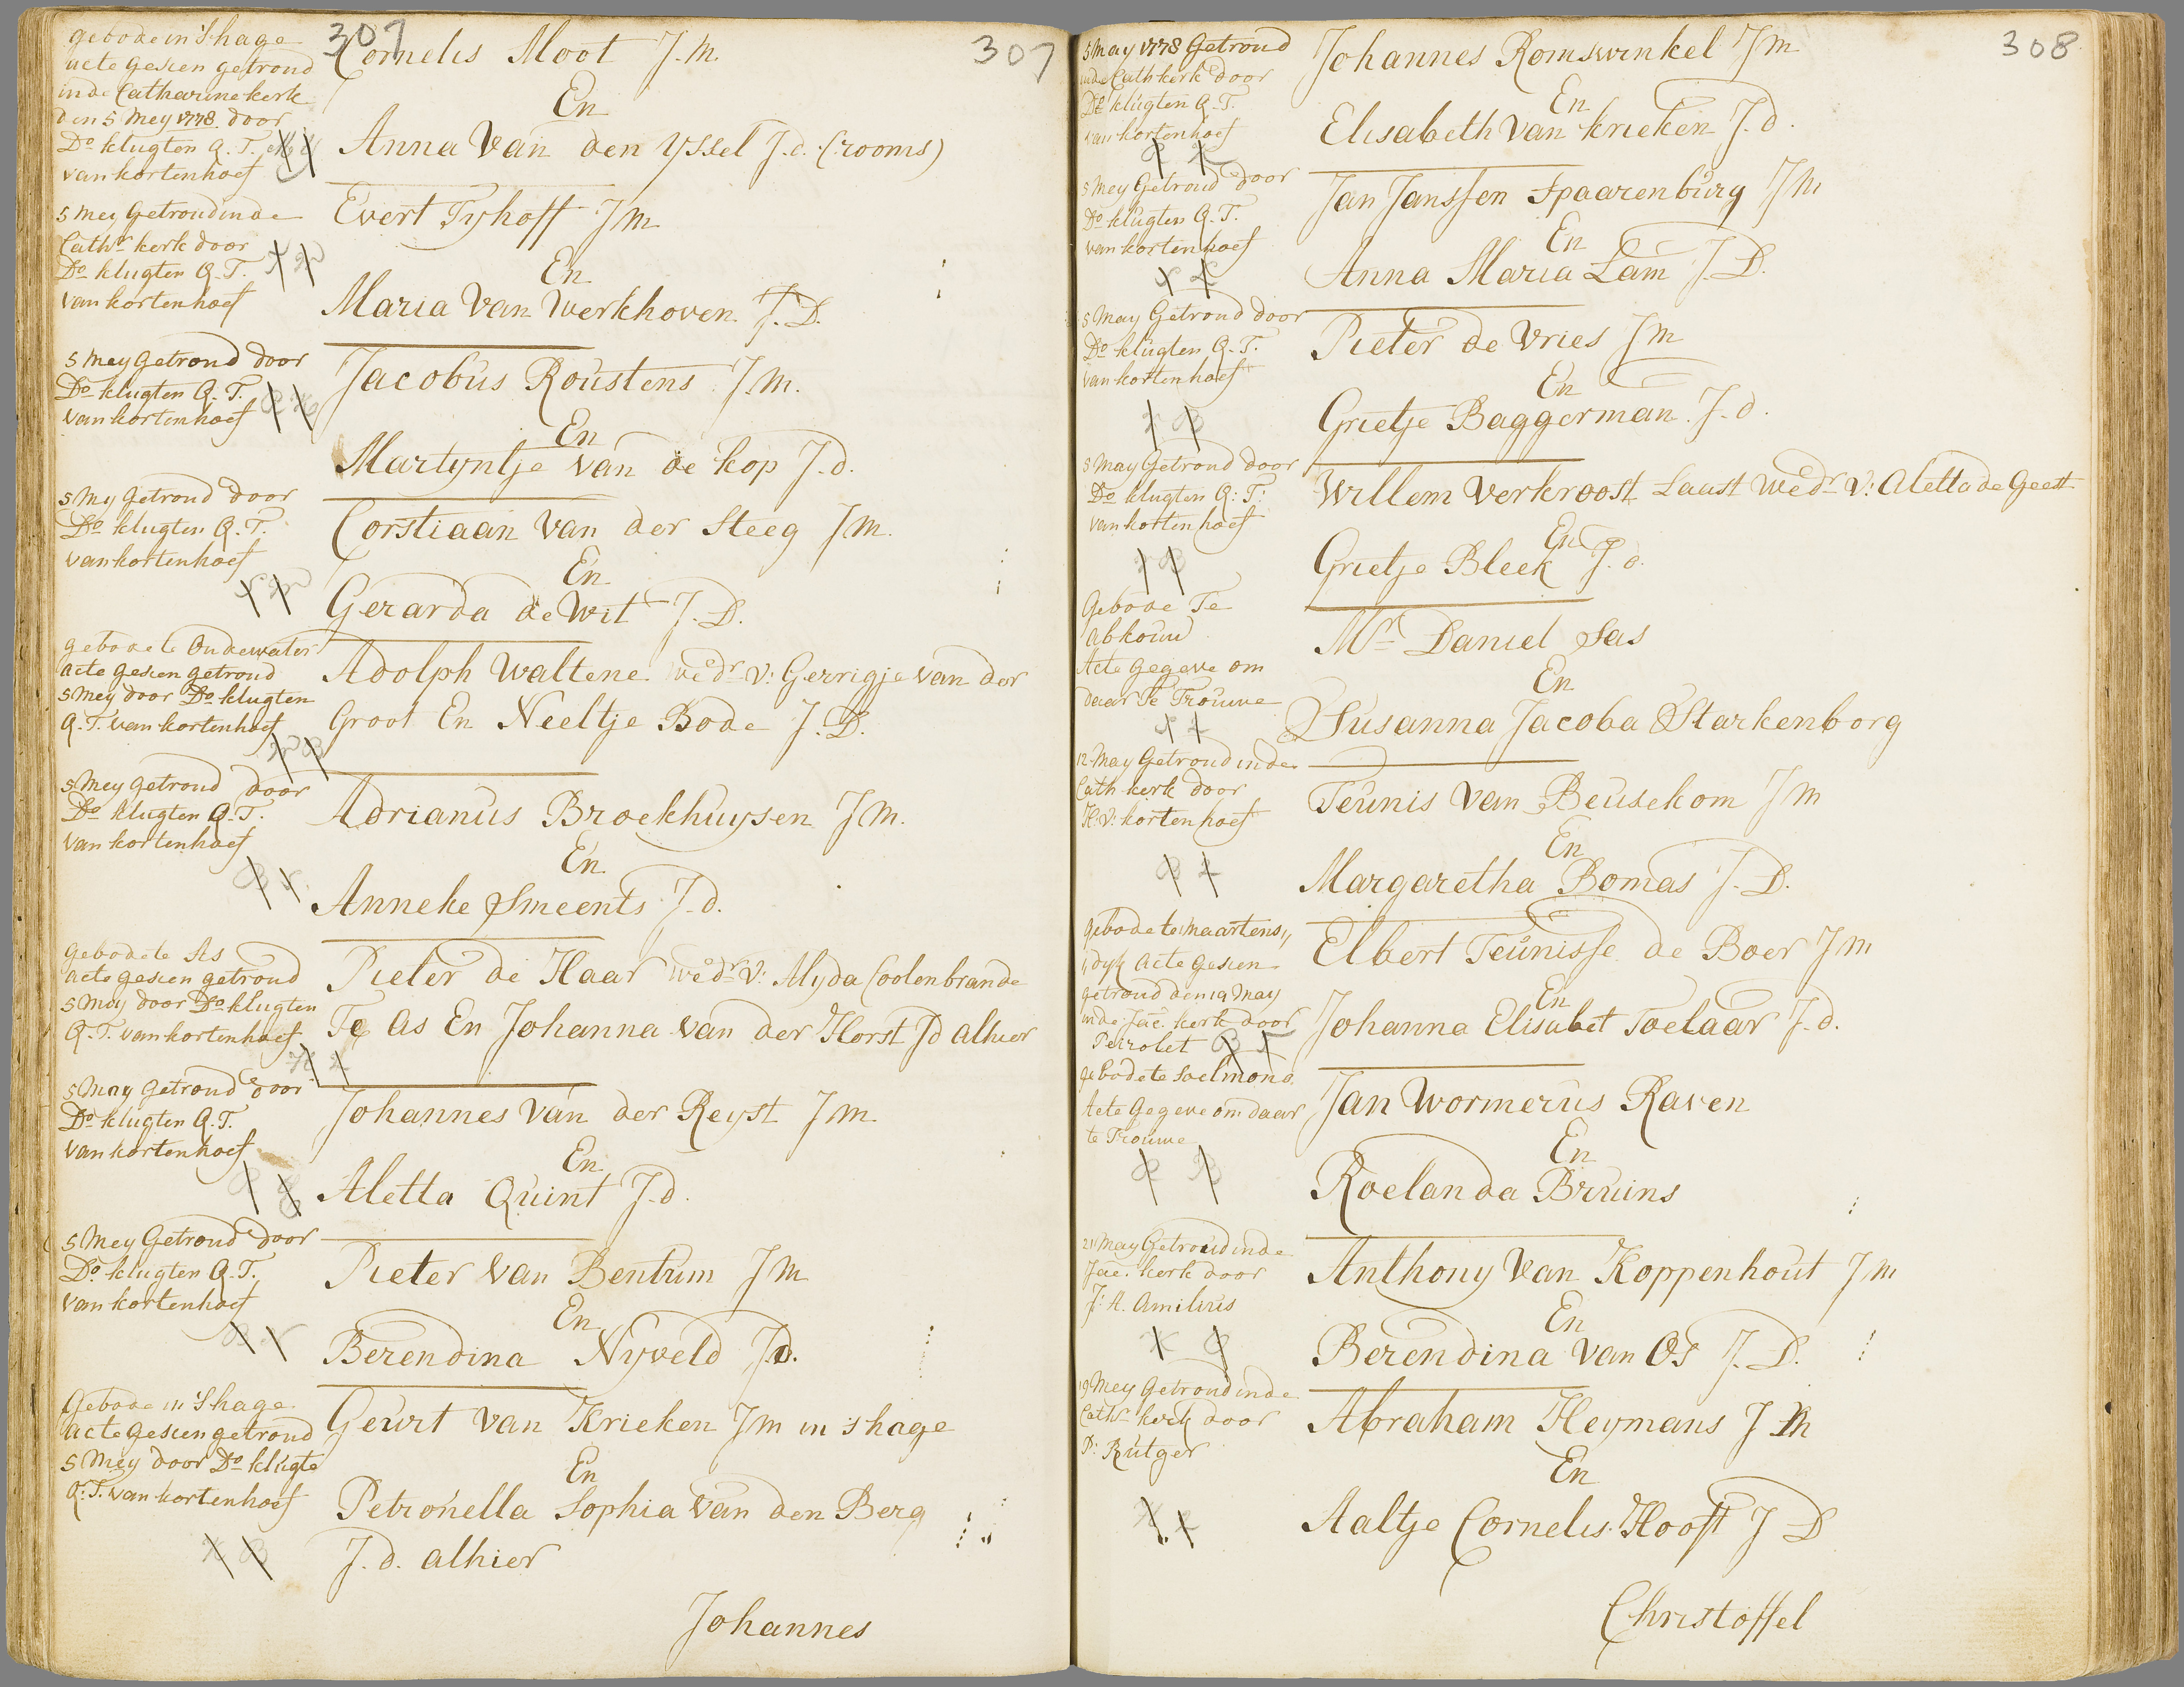 307
307
gebode in 'S hage
acte gesien getroud
in de Catharinekerk
den 5 Mey 1778 door
Do klugten Q. T. en
van kortenhoef
Cornelis Moot J. M.
En
Anna Van den Yssel J. d. (rooms)
5 mey Getroud inde
Cathr kerk door
Do klugten Q. T.
van kortenhoef
Evert Tyhoff J M
En
Maria Van Werkhoven J. D.
5 mey getroud door
Do klugten Q. T.
van kortenhoef
Jacobus Roustens J. M.
En
Martyntje van de kop J. d.
5 My getroud door
Do klugten Q. T.
van kortenhoef
Corstiaan Van der Steeg J M.
En
Gerarda de Wit J. D.
gebode te Oudewater
acte gesien getroud
5 mey door Do klugten
Q. T. van kortenhoef
Adolph Waltene wedr v: Gerrigje van der
Groot En Neeltje Bode J. D.
5 mey getroud door
Do klugten Q. T.
van kortenhoef
Adrianus Broekhuysen J M.
En
Anneke Smeents J. d.
gebode te As
acte gesien getroud
5 may door Do klugten
Q. T. van kortenhoef
Pieter de Haar wedr v: Alyda Coolenbrande
Te As En Johanna van der Horst Jd alhier
5 may getroud door
Do klugten Q. T.
van kortenhoef
Johannes van der Reyst J M
En
Aletta Quint J. d.
5 Mey Getroud door
Do klugten Q. T.
van kortenhoef
Pieter Van Bentum J M
En
Berendina Nyveld J. D.
Gebode in 'S hage
acte gesien getroud
5 Mey door Do klugte
Q: T. van kortenhoef
Geurt van Krieken J M in 's hage
En
Petronella Sophia van den Berg
J. d. alhier
Johannes
308
5 may 1778 Getroud
inde Cath kerk door
Do klugten Q. T.
van kortenhoef
Johannes Romswinkel J M
En
Elisabeth Van krieken J. d.
5 Mey Getroud door
Do klugten Q. T.
van kortenhoef
Jan Janssen Spaarenburg J M
En
Anna Maria Lam J. D.
5 may Getroud door
Do klugten Q. T.
van kortenhoef
Pieter de Vries J M
En
Grietje Baggerman J. d.
5 may Getroud door
Do klugten Q: T:
van kortenhoef
Willem Verkroost Laast wedr v: Aletta de Geest
En
Grietje Bleek J. d.
Gebode Te
abkouw
Acte gegeve om
daar Te Trouwe
Mr Daniel Sas
En
Susanna Jacoba Starkenborg
12 May Getroud inde
Cath kerk door
H: v: kortenhoef
Teunis Van Beusekom J M
En
Margaretha Bomas J. D.
gebode te Maartens,,
,,dyk acte gesien
getroud den 19 May
inde Jac. kerk door
Peirolet
Elbert Teunisse de Boer J M
En
Johanna Elisabet Toelaar J. d.
gebode te Soelmond
Acte gegeve om daar
te Trouwe
Jan Wormerus Raven
En
Roelanda Bruins
21 May Getroud inde
Jac. kerk door
J: A. Amilius
Anthony Van Koppenhout J M
En
Berendina Van Os J. D.
19 Mey Getroud inde
Cathr kerk door
P: Rutger
Abraham Heymans J M
En
Aaltje Cornelis Hooft J D
Christoffel